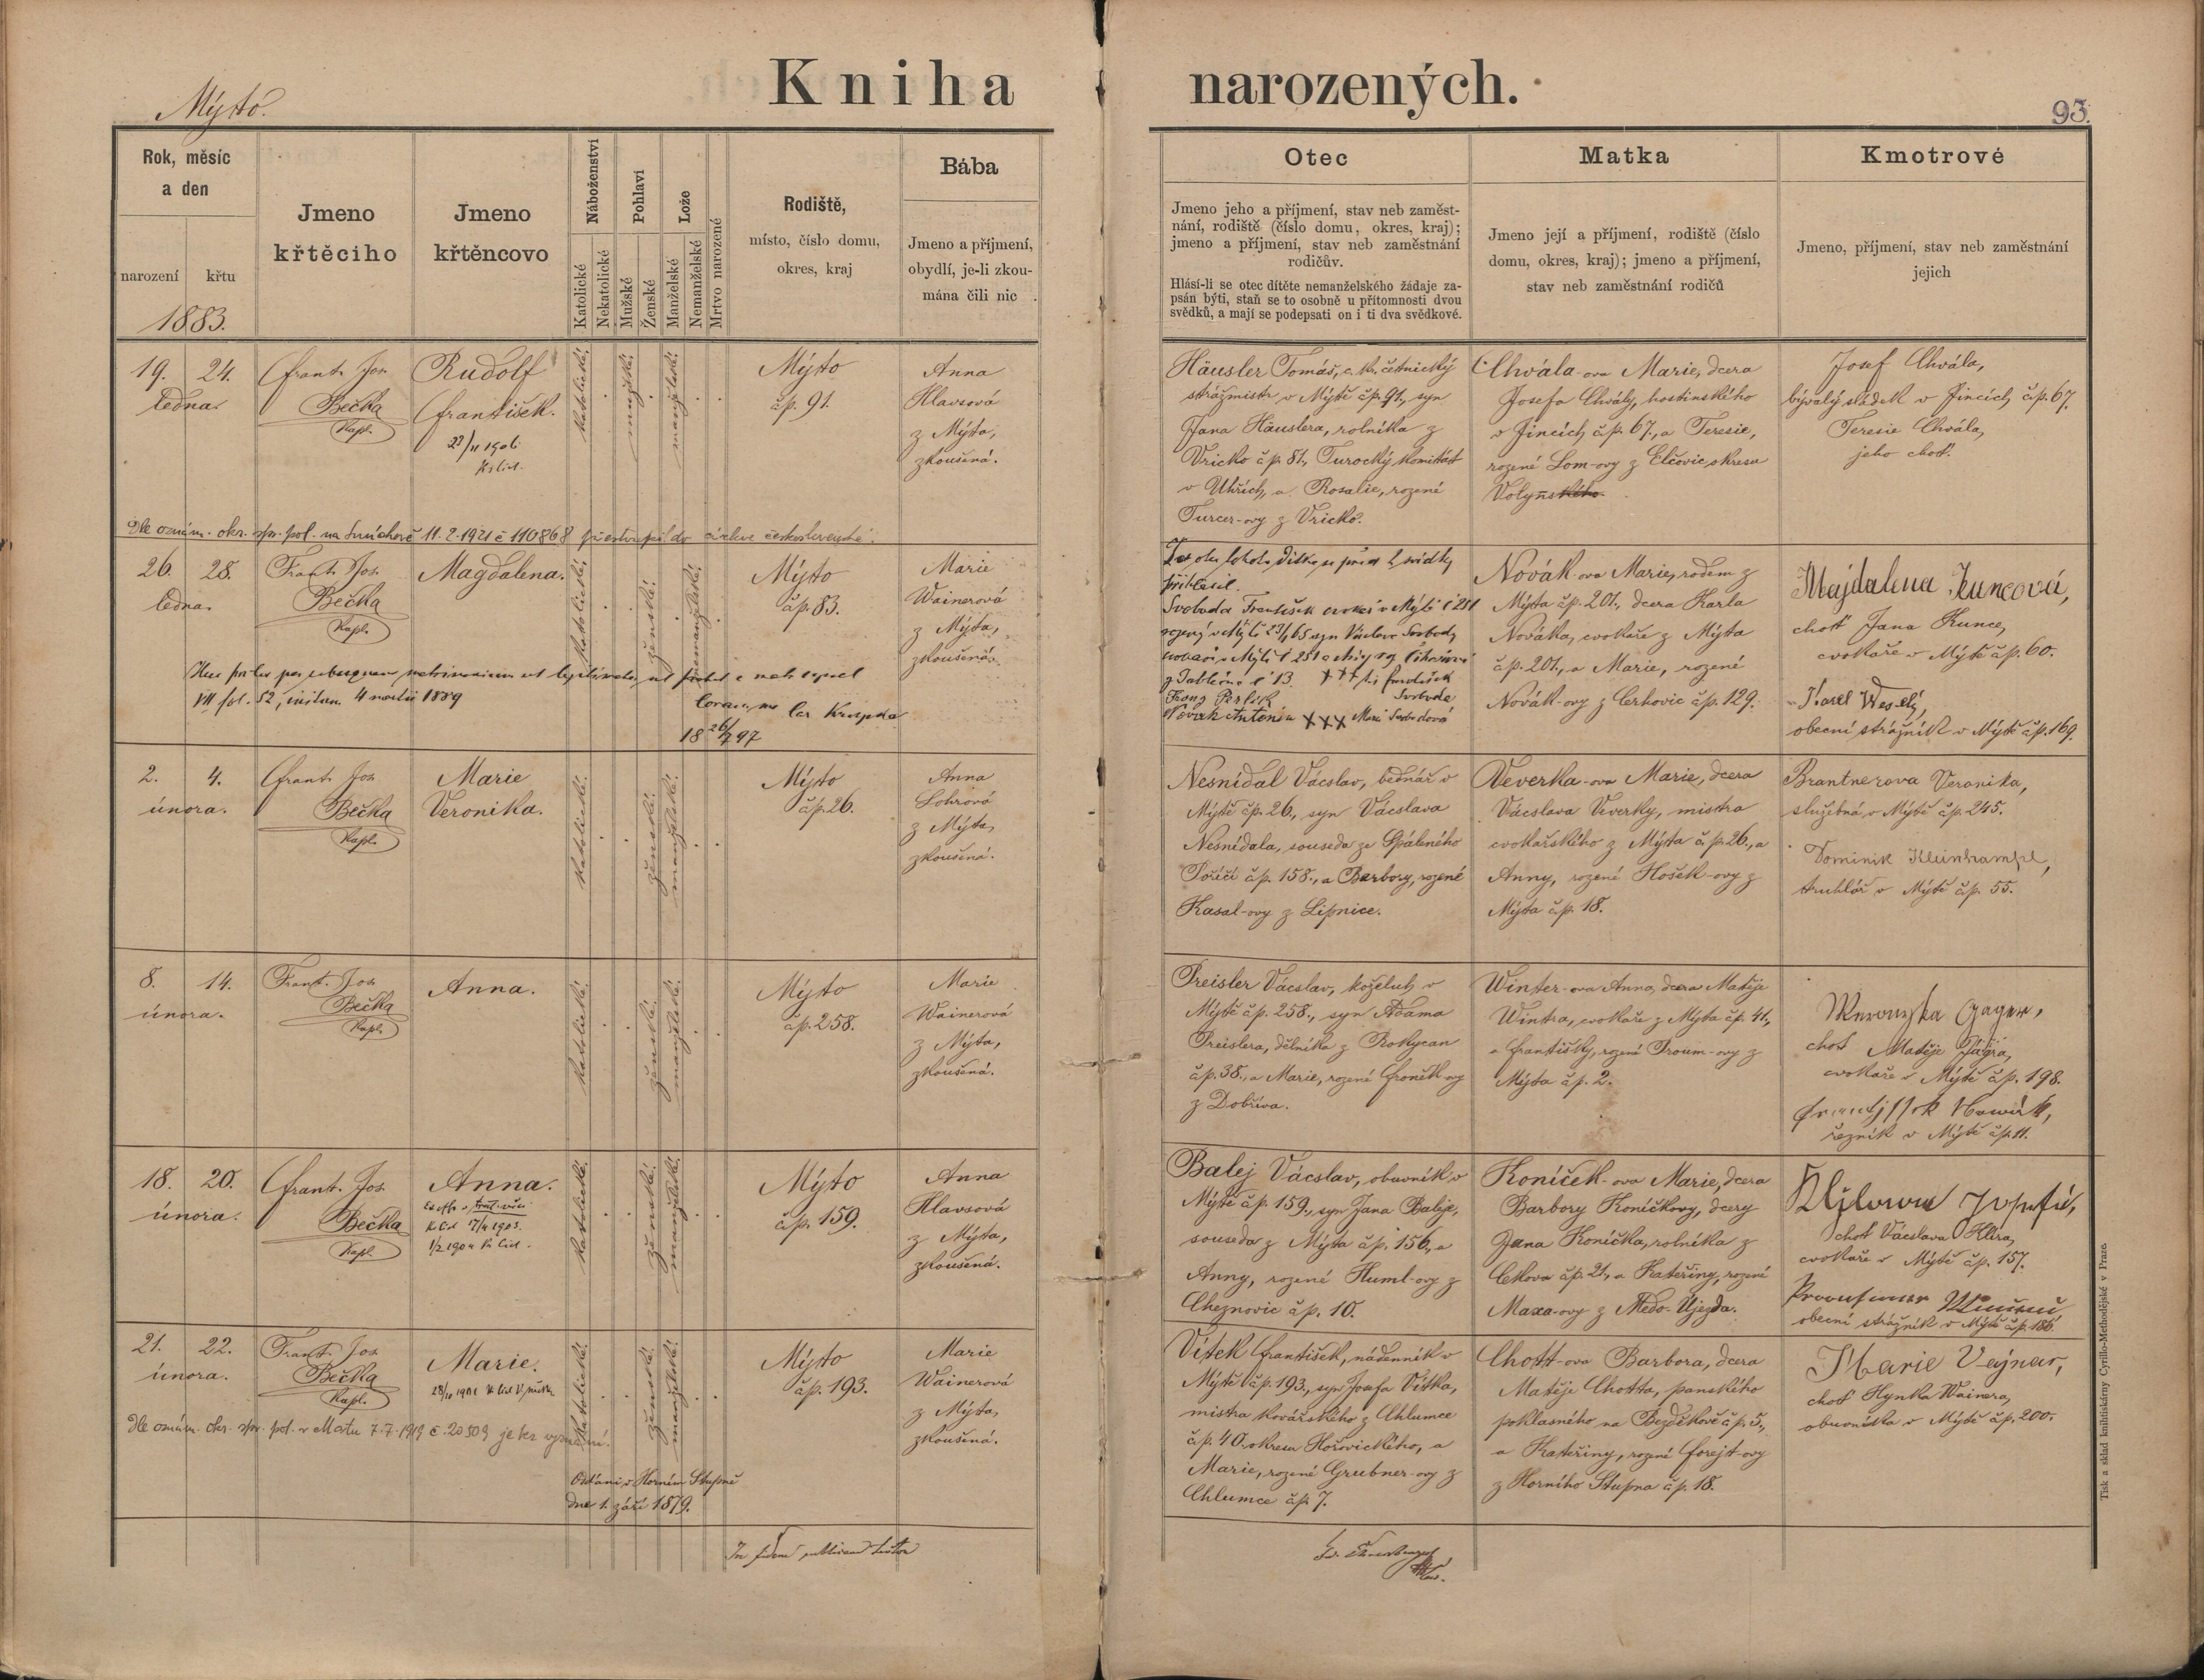 Kniha narozených.
Mýto.
93.
Rok, měsíc
a den
narození
křtu
1883.
Jmeno
křtěcího
Jmeno
křtěncovo
Náboženství
Katolické
Nekatolické
Pohlaví
Mužské
Ženské
Lože
Manželské
Nemanželské
Mrtvo narozené
Rodiště,
místo, číslo domu,
okres, kraj
Bába
Jmeno a příjmení,
obydlí, je-li zkou-
mána čili nic
Otec
Jmeno jeho a příjmení, stav neb zaměst-
nání, rodiště (číslo domu, okres, kraj);
jmeno a příjmení, stav neb zaměstnání
rodičův.
Hlásí-li se otec dítěte nemanželského žádaje za-
psán býti, staň se to osobně u přítomnosti dvou
svědků, a mají se podepsati on i ti dva svědkové.
Matka
Jmeno její a příjmení, rodiště (číslo
domu, okres, kraj); jmeno a příjmení,
stav neb zaměstnání rodičů
Kmotrové
Jmeno, příjmení, stav neb zaměstnání
jejich
19. 24.
ledna.
Frant. Jos.
Bečka
Kapl.
Rudolf
František.
23/11 1906
Kř. list.
katolické.
mužské.
manželské.
Mýto
čp. 91.
Anna
Hlavsová
z Mýta,
zkoušená.
Häusler Tomáš, c. k. četnický
strážmistr v Mýtě čp. 91., syn
Jana Häuslera, rolníka z
Vricko čp. 81., Turocký komitát
v Uhřích, a Rosalie, rozené
Turcer-ovy z Vricko.
Chvála-ova Marie, dcera
Josefa Chvály, hostinského
v Jincích čp. 67., a Teresie,
rozené Lom-ovy z Elčovic okresu
Volyňského.
Josef Chvála,
bývalý sládek v Jincích čp. 67.
Teresie Chvála,
jeho choť.
Dle oznám. okr. spr. pol. na Smíchově 11.2.1921 č 110868 přestoupil do církve československé.
26. 28.
ledna.
Frant. Jos.
Bečka
Kapl.
Magdalena.
katolické.
ženské.
nemanželské.
Mýto
čp. 83.
Marie
Wainerová
z Mýta,
zkoušená.
Za otce tohoto dítka se před 2 svědky
přihlásil
Svoboda František cvokař v Mýtě č 251
rozený v Mýtě 23/1 65 syn Václava Svobody
Franz Perlík
Novák Antonia XXX Marie Svobodová
Novák-ova Marie, rodem z
Mýta čp. 201., dcera Karla
Nováka, cvokaře z Mýta
čp. 201., a Marie, rozené
Novák-ovy z Cerhovic čp. 129.
Majdalena Kuncová,
choť Jana Kunce,
cvokaře v Mýtě čp. 60.
Karel Weselý,
obecní strážník v Mýtě čp. 169.
VII fol. 52, initum 4 martii 1889
Coram me
18 26/7 97
2. 4.
února.
Frant. Jos.
Bečka
Kapl.
Marie
Veronika.
katolické.
ženské.
manželské.
Mýto
čp. 26.
Anna
Lohrová
z Mýta,
zkoušená.
Nesnídal Vácslav, bednář v
Mýtě čp. 26., syn Vácslava
Nesnídala, souseda ze Spáleného
Poříčí čp. 158., a Barbory, rozené
Kasal-ovy z Lipnice.
Veverka-ova Marie, dcera
Vácslava Veverky, mistra
cvokařského z Mýta čp. 26., a
Anny, rozené Hošek-ovy z
Mýta čp. 18.
Brantnerova Veronika,
služebná v Mýtě čp. 245.
Dominik Kleinhampl,
truhlář v Mýtě čp. 55.
8. 14.
února.
Frant. Jos.
Bečka
Kapl.
Anna.
katolické.
ženské.
manželské.
Mýto
čp. 258.
Marie
Wainerová
z Mýta,
zkoušená.
Preisler Vácslav, koželuh v
Mýtě čp. 258., syn Adama
Preislera, dělníka z Rokycan
čp. 38., a Marie, rozené Froněk-ovy
z Dobřiva.
Winter-ova Anna, dcera Matěje
Wintra, cvokaře z Mýta čp. 41.,
a Františky, rozené Proum-ovy z
Mýta čp. 2.
choť Matěje Jágra,
cvokaře v Mýtě čp. 198.
řezník v Mýtě čp. 11.
18. 20.
února.
Frant. Jos.
Bečka
Kapl.
Anna.
1/2 1904 Kř. list.
katolické.
ženské.
manželské.
Mýto
čp. 159.
Anna
Hlavsová
z Mýta,
zkoušená.
Balej Vácslav, obuvník v
Mýtě čp. 159., syn Jana Baleje,
souseda z Mýta čp. 156., a
Anny, rozené Huml-ovy z
Cheznovic čp. 10.
Koníček-ova Marie, dcera
Barbory Koníčkovy, dcery
Jana Koníčka, rolníka z
Cekova čp. 21., a Kateřiny, rozené
Maxa-ovy z Medo-Újezda.
choť Vácslava Klíra,
cvokaře v Mýtě čp. 157.
obecní strážník v Mýtě čp. 186.
21. 22.
února.
Frant. Jos.
Bečka
Kapl.
Marie.
katolické.
ženské.
manželské.
Mýto
čp. 193.
Marie
Wainerová
z Mýta,
zkoušená.
Vítek František, nádenník v
Mýtě čp. 193., syn Josefa Vítka,
mistra kovářského z Chlumce
čp. 40. okresu Hořovického, a
Marie, rozené Grubner-ovy z
Chlumce čp. 7.
Chott-ova Barbora, dcera
Matěje Chotta, panského
poklasného na Bezděkově čp. 5.,
a Kateřiny, rozené Forejt-ovy
z Horního Stupna čp. 18.
Marie Vejnar,
choť Hynka Wainera,
obuvníka v Mýtě čp. 200.
Dle oznám. okr. spr. pol. v Mostu 7.7.1919 č. 20509 je bez vyznání.
Oddáni v Horním Stupně
dne 1. září 1879.
In fidem publicam
Tisk a sklad knihtiskárny Cyrillo-Methodějské v Praze.